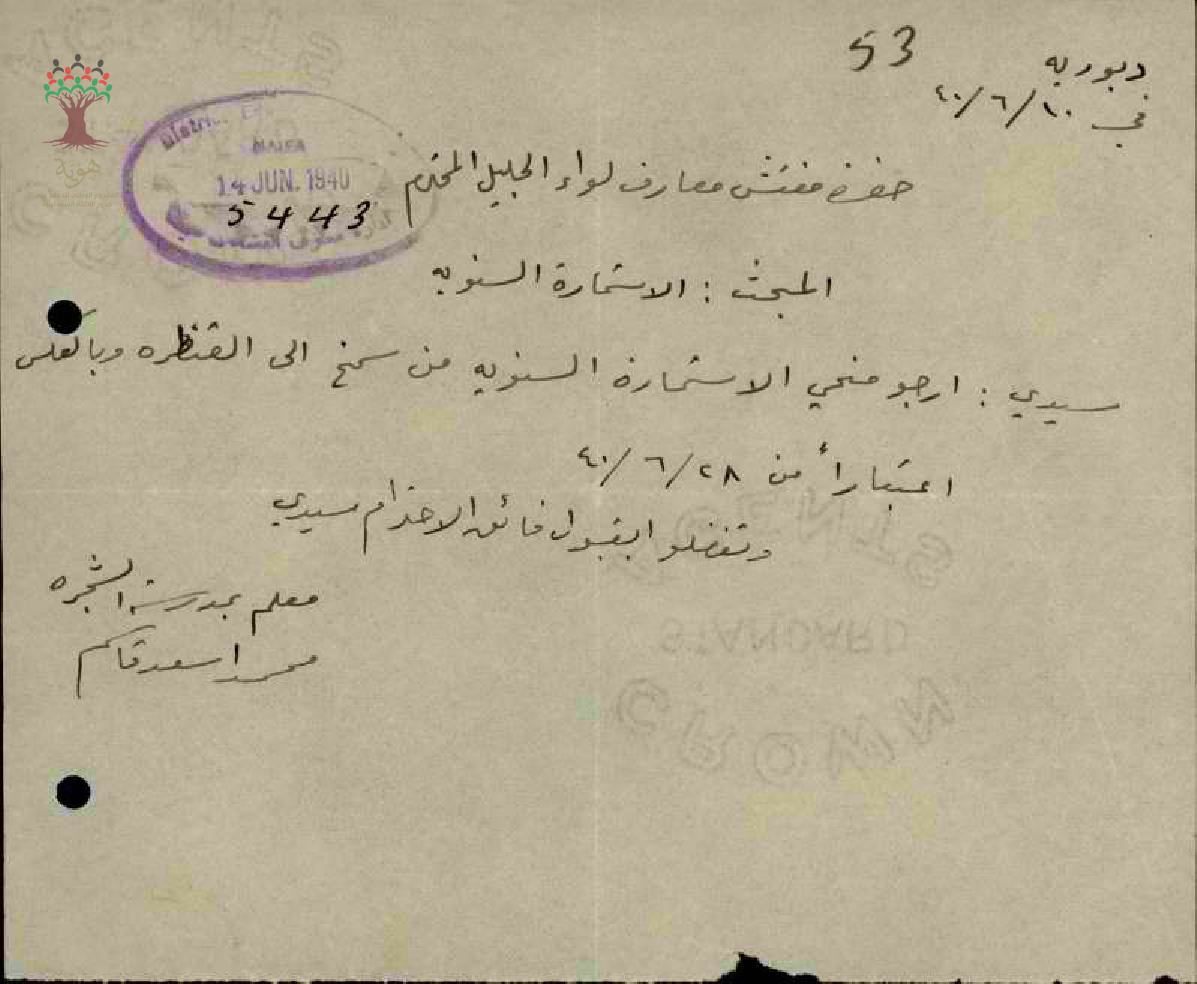 53
دبوريه
في ١٠/٦/٤٠
HAIFA
14 JUN. 1940
5443
حضرة مفتش معارف لواء الجليل المحترم
المبحث : الاستمارة السنويه
سيدي : ارجو منحي الاستمارة السنويه من سمخ الى القنطره وبالعكس
اعتباراً من ٢٨/٦/٤٠
وتفضلوا بقبول فائق الاحترام سيدي
معلم بمدرسة الشجره
محمد اسعد قاسم
هوية
STANDARD
CROWN